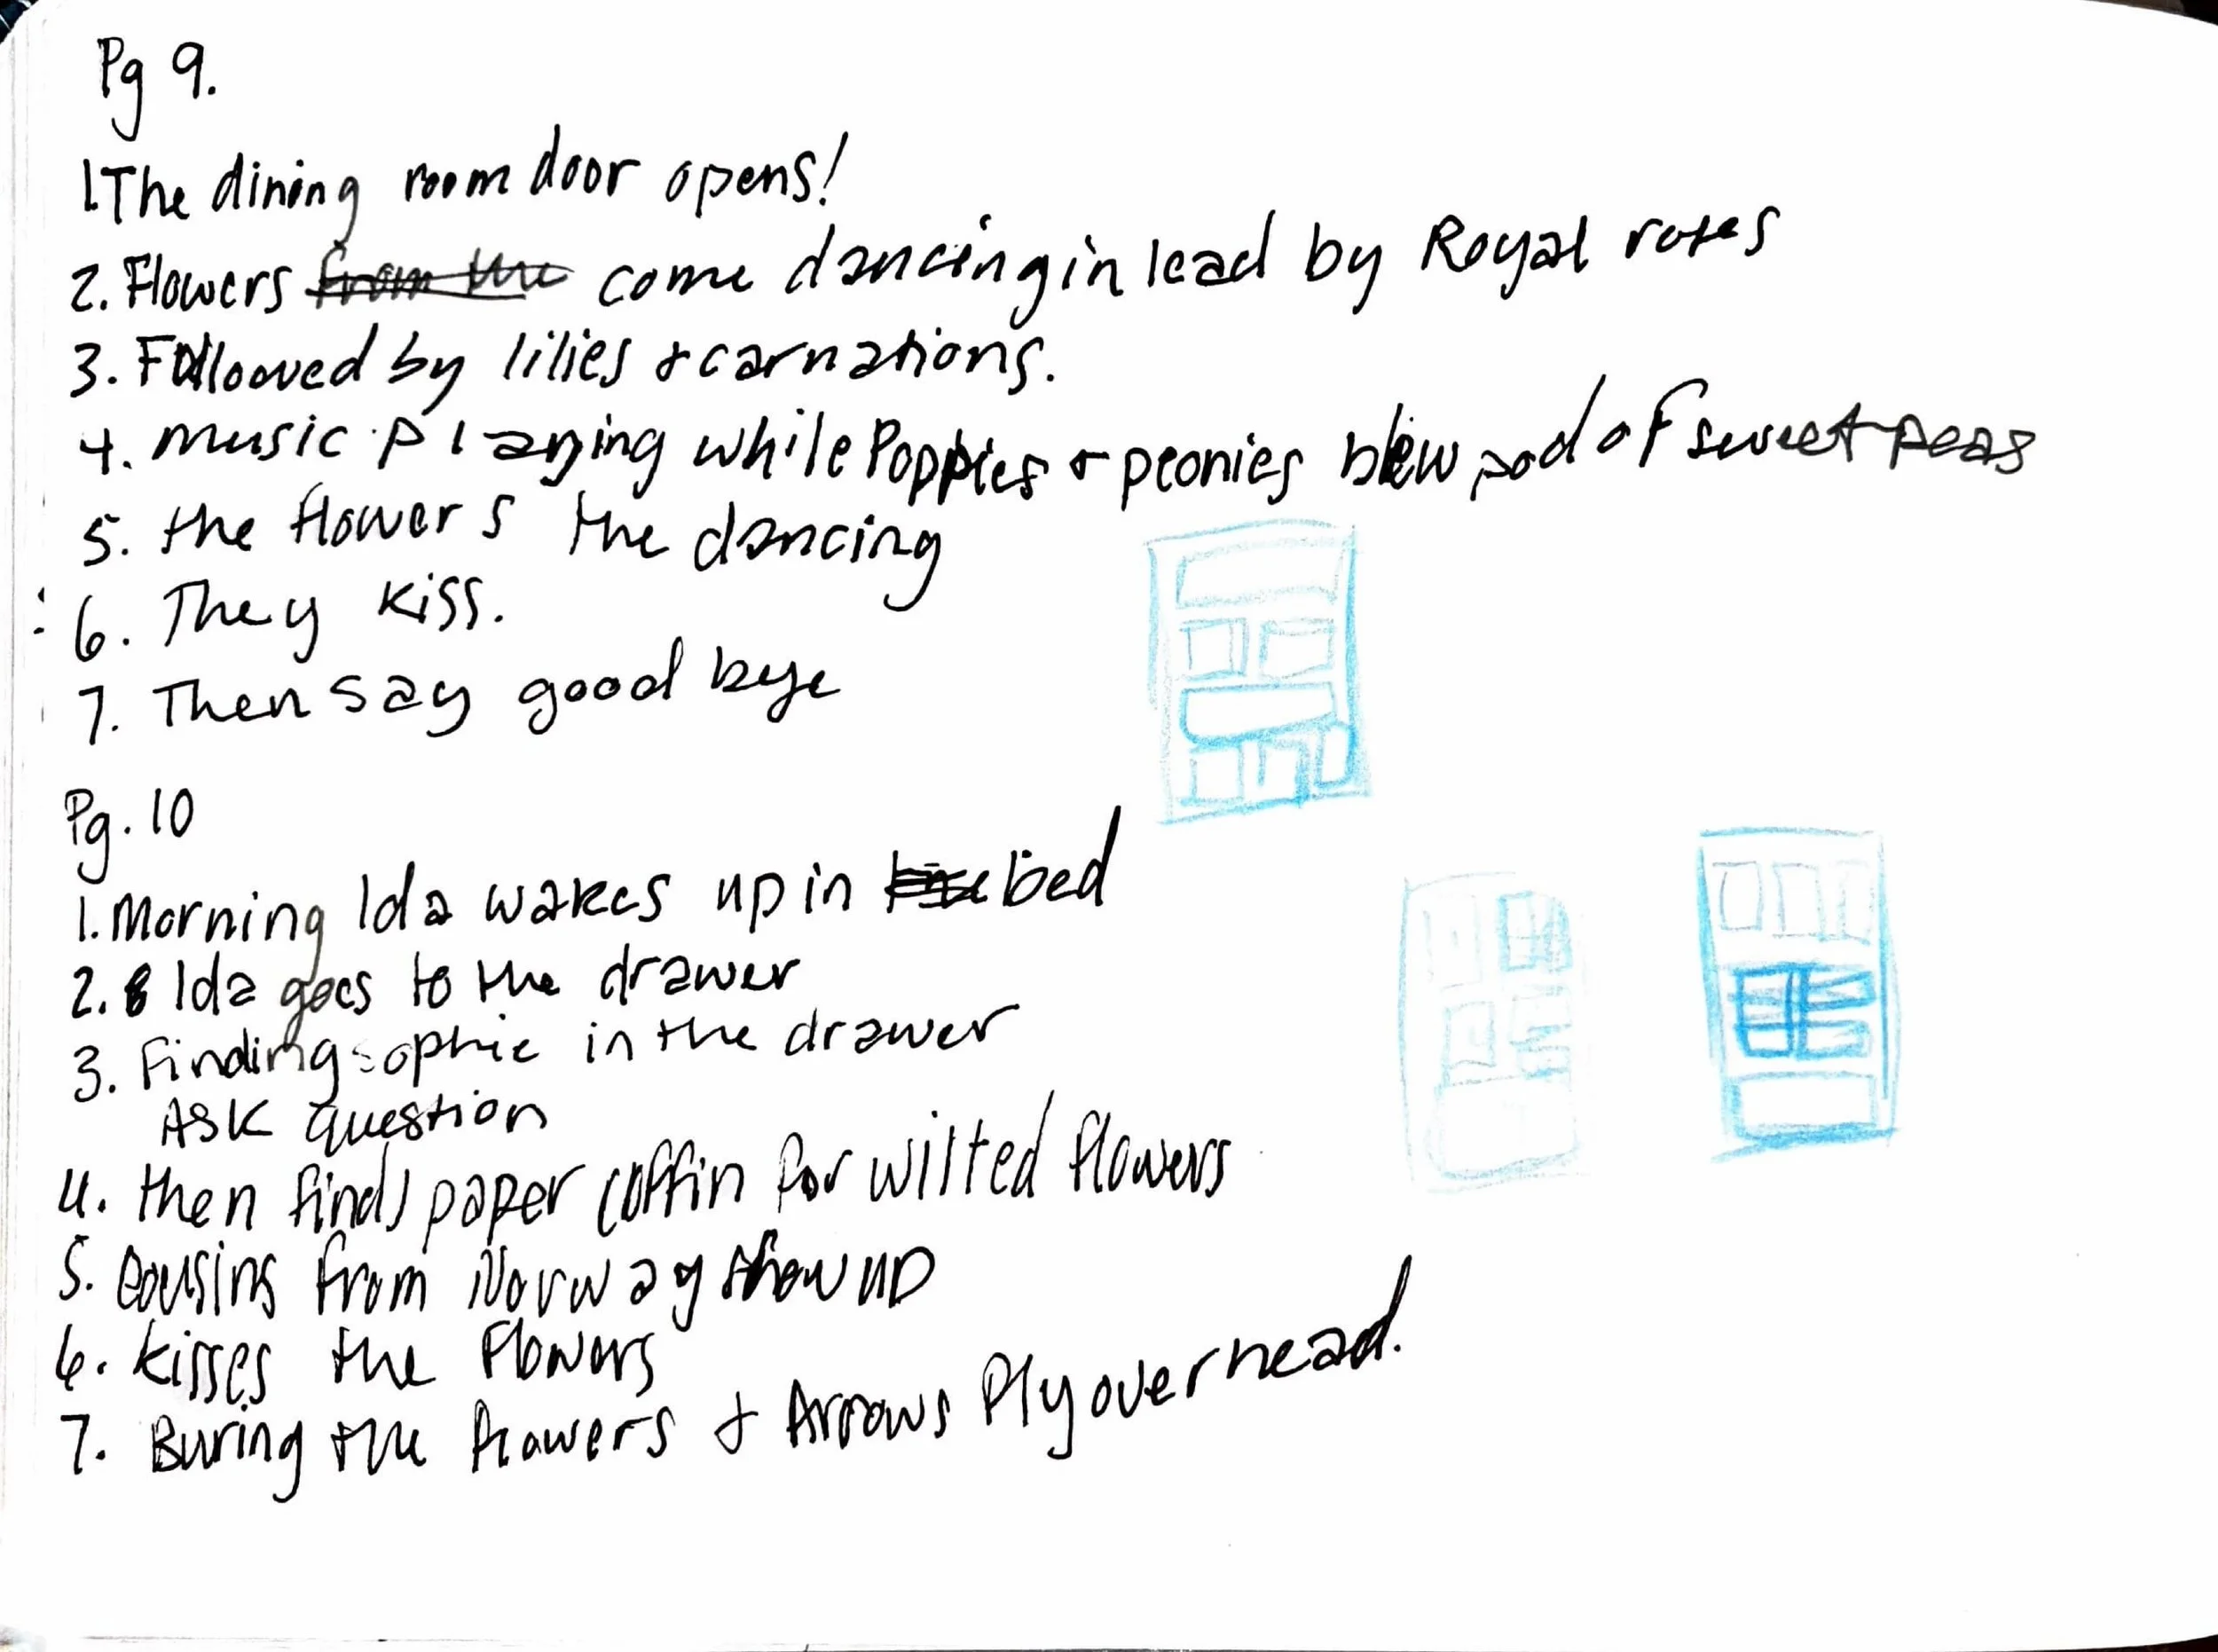 Pg 9.
1. The dining room door opens!
2. Flowers from the come dancing in lead by Royal roses
3. Followed by lilies + carnations.
4. music playing while Poppies + peonies blew pod of sweet peas
5. the flowers the dancing
6. They kiss.
7. Then say good bye
Pg. 10
1. Morning Ida wakes up in bed
2. Ida goes to the drawer
3. Finding sophie in the drawer
Ask question
4. then finds paper coffin for wilted flowers
5. cousins from Norway show up
6. kisses the flowers
7. Buring the flowers + Arrows Fly overhead.